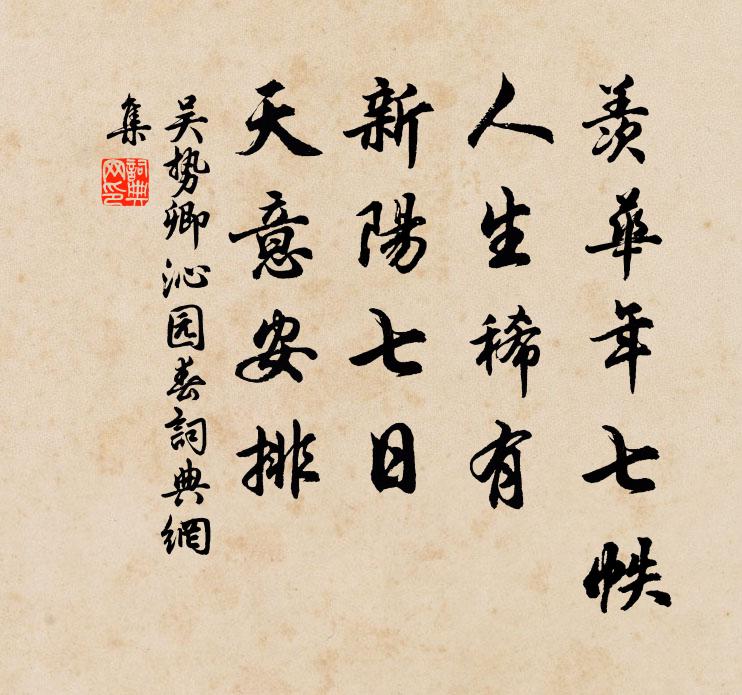 羡華年七帙
人生稀有
新陽七日
天意安排
吴势卿沁园春詞典網
集
詞典
网印